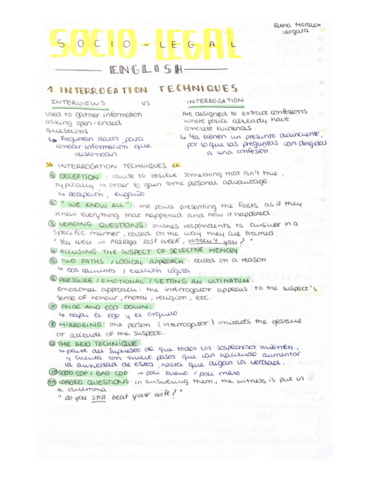 Elena Morales
Vergara
SOCIO-LEGAL
ENGLISH
1 INTERROGATION TECHNIQUES
INTERVIEWS VS. INTERROGATION
Used to gather information
asking open-ended
questions
↳ Preguntan datos para
conocer información que
desconocen
Are designed to extract confessions
where police already have
concrete evidence
↳ Ya tienen un presunto delincuente,
por lo que las preguntas van dirigidas
a una confesión.
INTERROGATION TECHNIQUES
① DECEPTION: cause to believe something that isn't true,
typically in order to gain some personal advantage.
↳ decepción, engaño
② "WE KNOW ALL": the police presenting the facts as if they
knew everything that happened and how it happened.
③ LEADING QUESTIONS: pushes respondents to answer in a
specific manner, based on the way they are framed.
"You were in Málaga last week, weren't you?"
④ ACCUSING THE SUSPECT OF SELECTIVE MEMORY
⑤ TWO PATHS / LOGICAL APPROACH: based on a reason
↳ dos caminos / elección lógica
⑥ PRESSURE / EMOTIONAL / SETTING AN ULTIMATUM
emotional approach: the interrogator appeals to the suspect's
sense of honour, moral, religion, etc.
⑦ PRIDE AND EGO DOWN.
↳ bajar el ego y el orgullo
⑧ MIRRORING: one person (interrogator) imitates the gesture
or attitude of the suspect.
⑨ THE REID TECHNIQUE
↳ parte del supuesto de que todos los sospechosos mienten,
y cuenta con nueve pasos que van haciendo aumentar
la ansiedad de estos, hasta que digan la verdad.
⑩ GOOD COP / BAD COP → poli bueno / poli malo
⑪ LOADED QUESTIONS: in answering them, the witness is put in
a dilemma.
"Do you still beat your wife?"